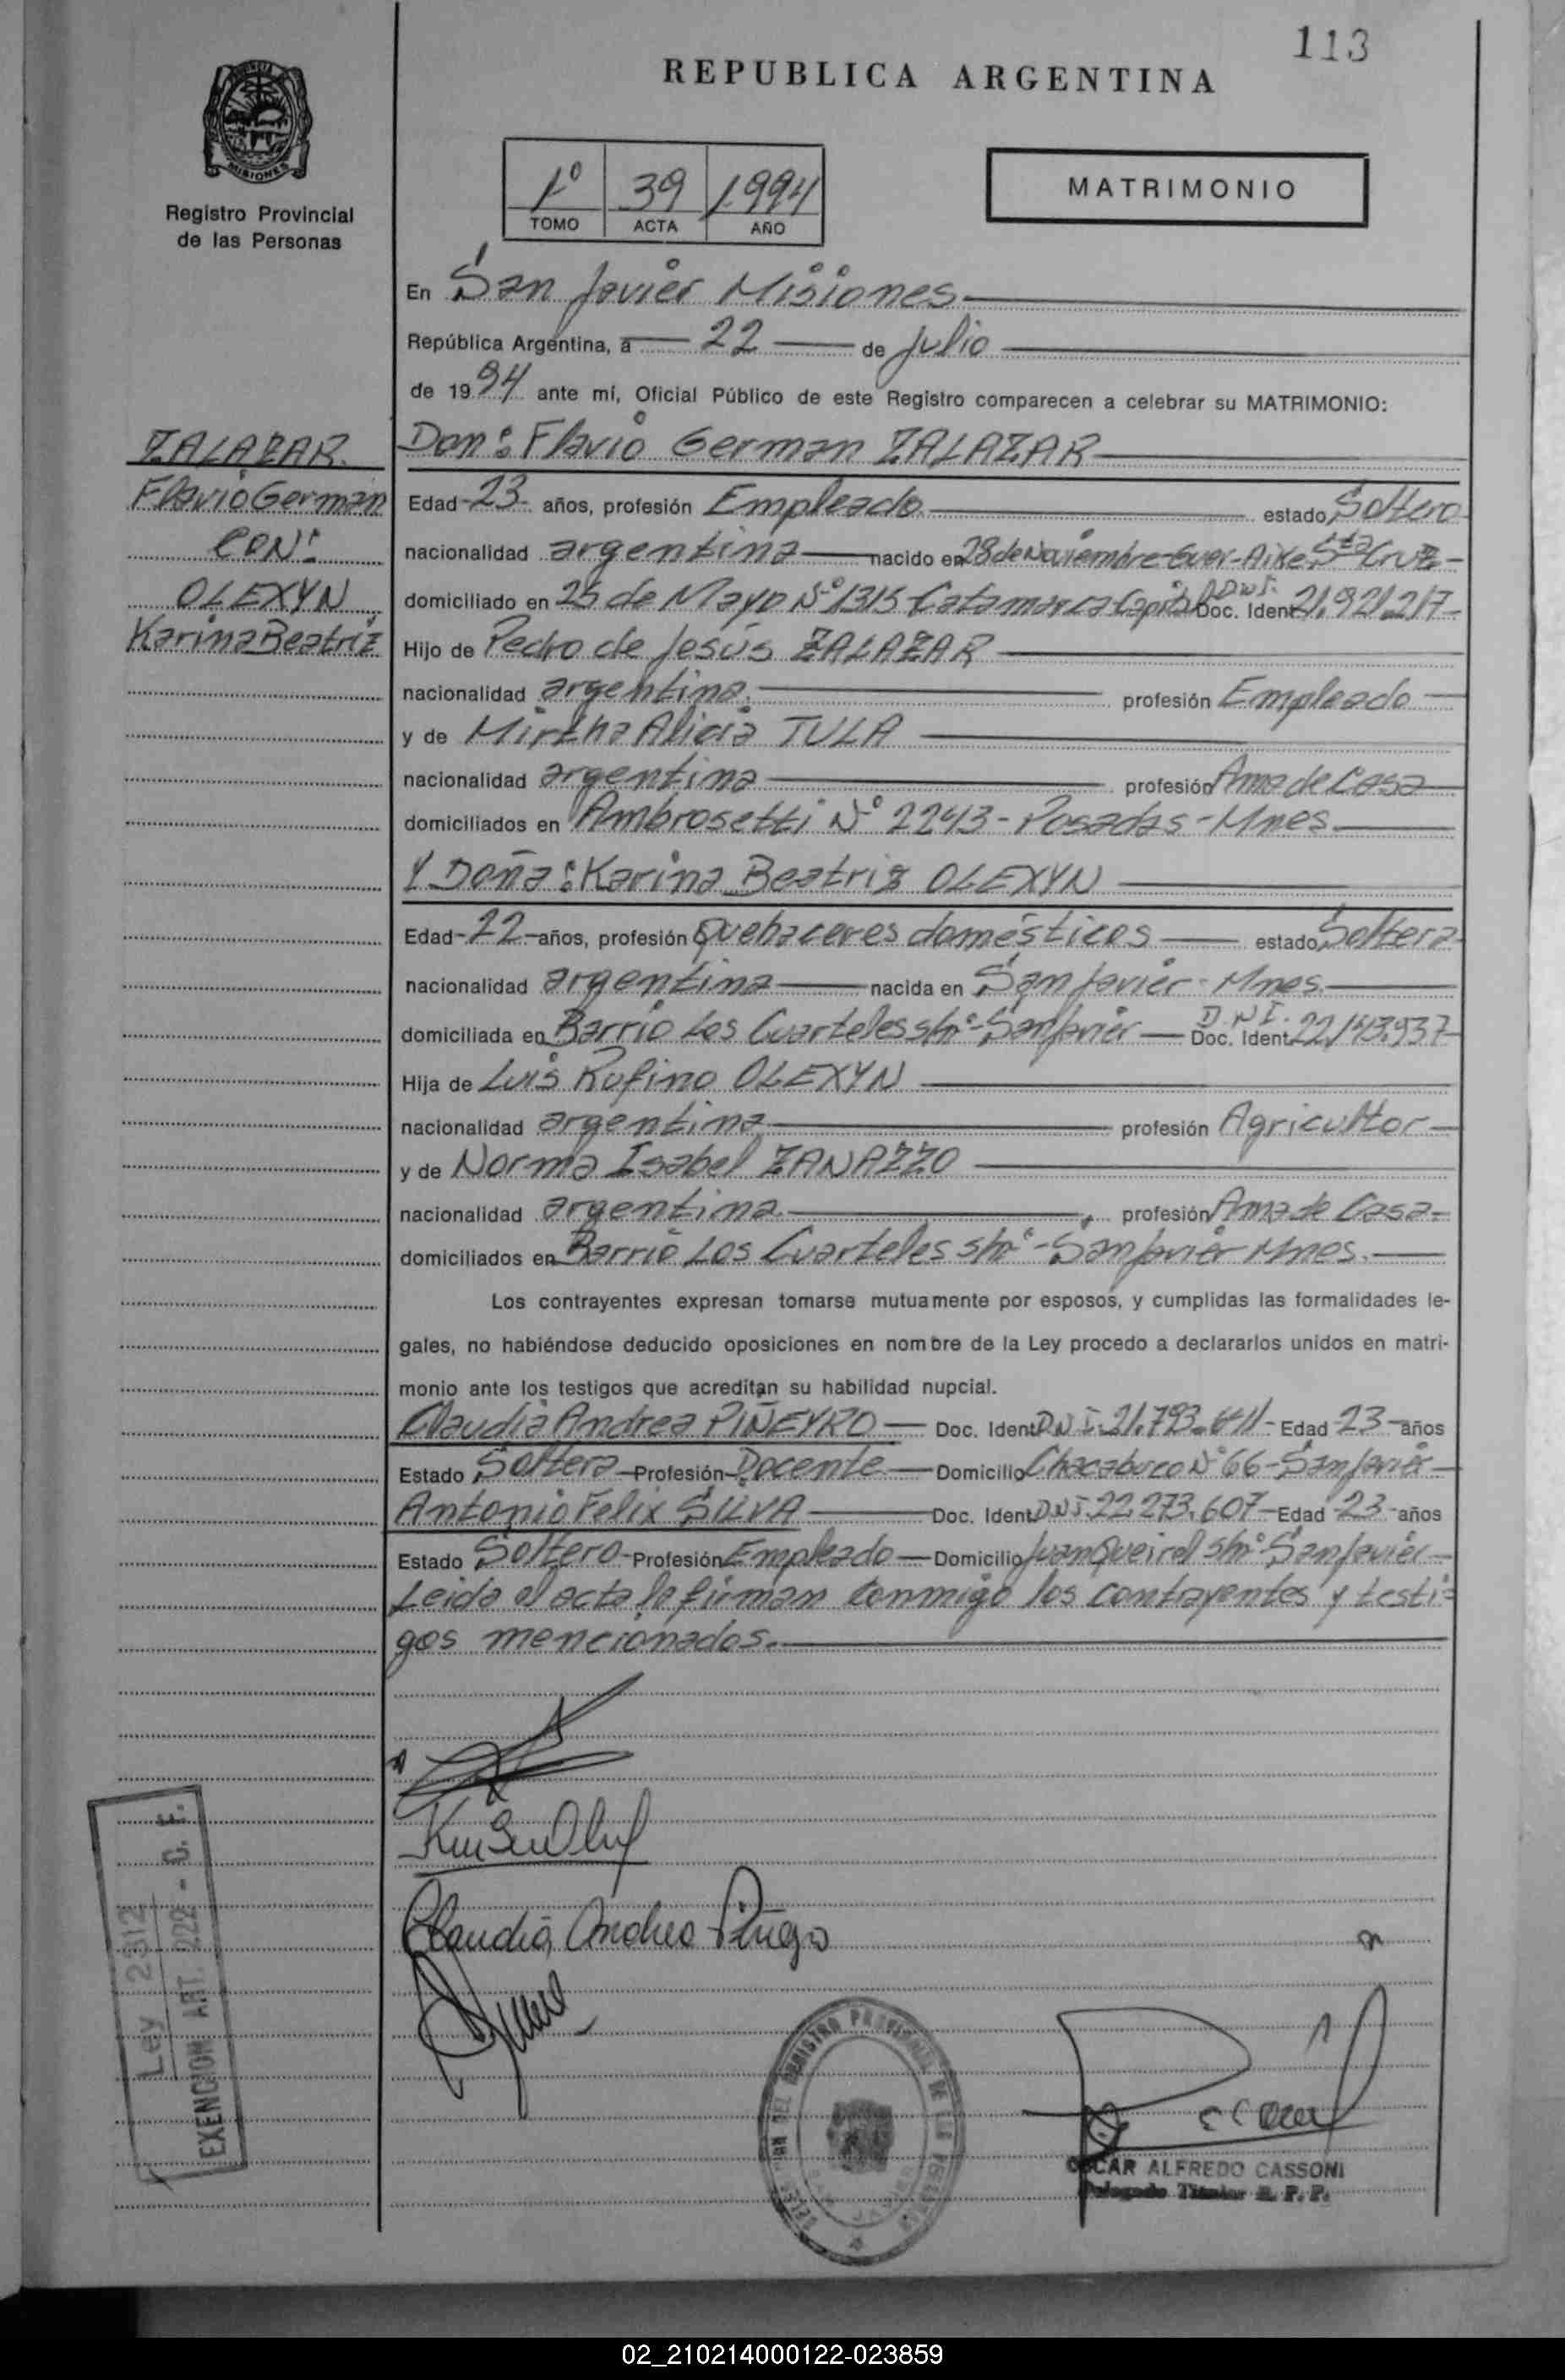 113
REPUBLICA ARGENTINA
MISIONES
Registro Provincial
de las Personas
1º 39 1994
TOMO ACTA AÑO
MATRIMONIO
En San Javier Misiones
República Argentina, a 22 de Julio
de 1994 ante mí, Oficial Público de este Registro comparecen a celebrar su MATRIMONIO:
ZALAZAR
Flavio German
CON:
OLEXYN
Karina Beatriz
Don: Flavio German ZALAZAR
Edad -23- años, profesión Empleado estado Soltero
nacionalidad argentina nacido en 28 de Noviembre-Guer-Aike Sta Cruz-
domiciliado en 25 de Mayo Nº 1315-Catamarca Capital Doc. Ident D.N.I. 21.921.217-
Hijo de Pedro de Jesús ZALAZAR
nacionalidad argentina. profesión Empleado
y de Mirtha Alicia TULA
nacionalidad argentina profesión Ama de Casa
domiciliados en Ambrosetti Nº 2243-Posadas-Mnes
Y Doña: Karina Beatriz OLEXYN
Edad -22- años, profesión Quehaceres domésticos estado Soltera
nacionalidad argentina nacida en San Javier-Mnes.
domiciliada en Barrio Los Cuarteles s/nº-San Javier Doc. Ident D.N.I. 22.143.937-
Hija de Luis Rufino OLEXYN
nacionalidad argentina profesión Agricultor
y de Norma Isabel ZANAZZO
nacionalidad argentina profesión Ama de Casa-
domiciliados en Barrio Los Cuarteles s/nº-San Javier Mnes.
Los contrayentes expresan tomarse mutuamente por esposos, y cumplidas las formalidades le-
gales, no habiéndose deducido oposiciones en nombre de la Ley procedo a declararlos unidos en matri-
monio ante los testigos que acreditan su habilidad nupcial.
Claudia Andrea PIÑEYRO Doc. Ident D.N.I. Edad 23 años
Estado Soltera Profesión Docente Domicilio Chacabuco Nº 66-San Javier
Antonio Felix SILVA Doc. Ident D.N.I. 22.273.607 Edad 23 años
Estado Soltero Profesión Empleado Domicilio Juan Queirel s/nº San Javier
Leida el acta la firman conmigo los contrayentes y testi-
gos mencionados.
Claudia Andrea
Ley 2312
EXENCION ART. 222 - C. F.
REGISTRO PROVINCIAL DE LAS
OSCAR ALFREDO CASSONI
Delegado Titular R. P. P.
02_210214000122-023859